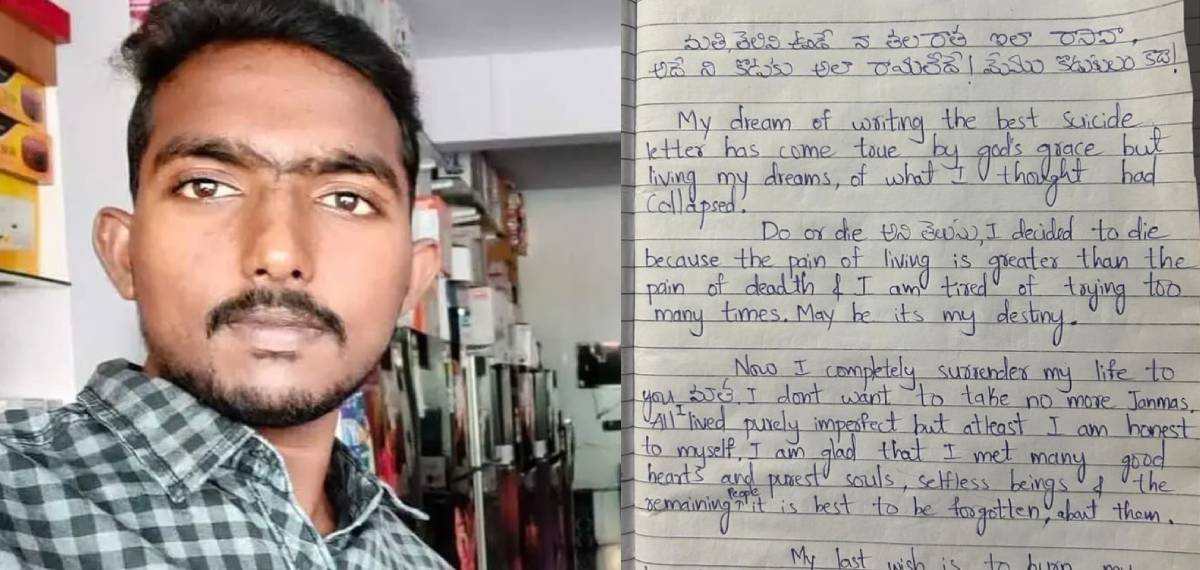 తెలివి ఉండే నా తల రాత ఇలా
అదే ని కొడుకు అలా రాయలేదే! మేము
My dream of writing the best suicide
letter has come true by god's grace but
living my dreams, of what I thought had
Collapsed.
Do or die అని తెలుసు, I decided to die
because the pain of living is greater than the
pain of deadth & I am tired of trying too
many times. May be its my destiny.
Now I completely surrender my life to
you I dont want to take no more Janmas.
All I lived purely imperfect but atleast I am honest
to myself. I am glad that I met many good
hearts and purest souls, selfless beings & the
remaining people it is best to be forgotten, about them.
My last wish is to burn my